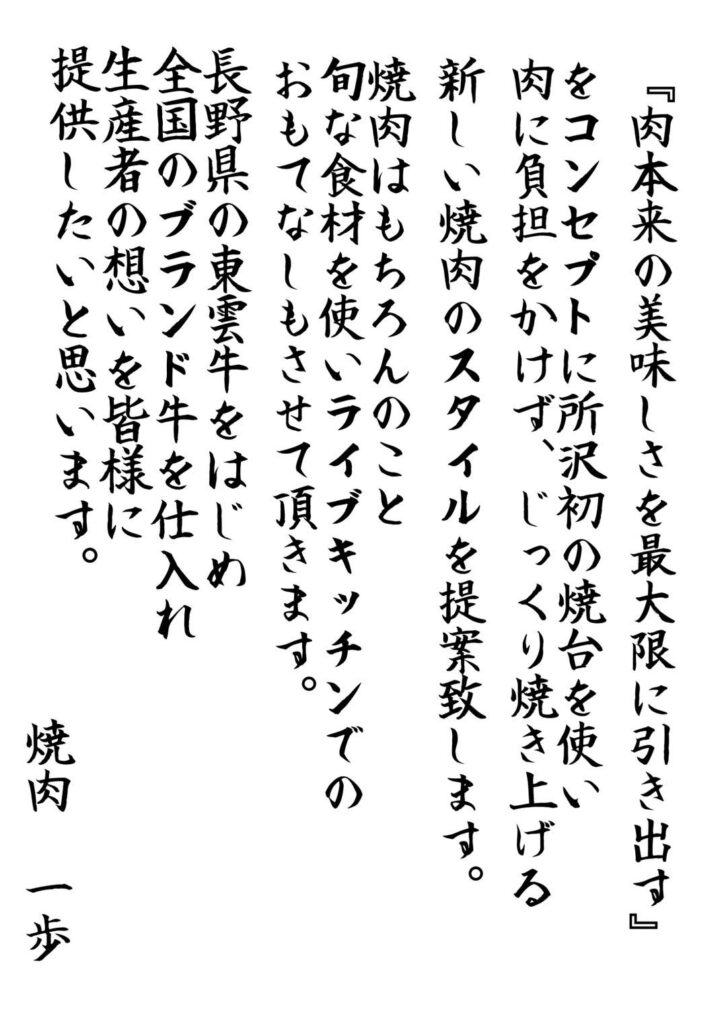 『肉本来の美味しさを最大限に引き出す』
をコンセプトに所沢初の焼台を使い
肉に負担をかけず、じっくり焼き上げる
新しい焼肉のスタイルを提案致します。
焼肉はもちろんのこと
旬な食材を使いライブキッチンでの
おもてなしもさせて頂きます。
長野県の東雲牛をはじめ
全国のブランド牛を仕入れ
生産者の想いを皆様に
提供したいと思います。
焼肉　一歩